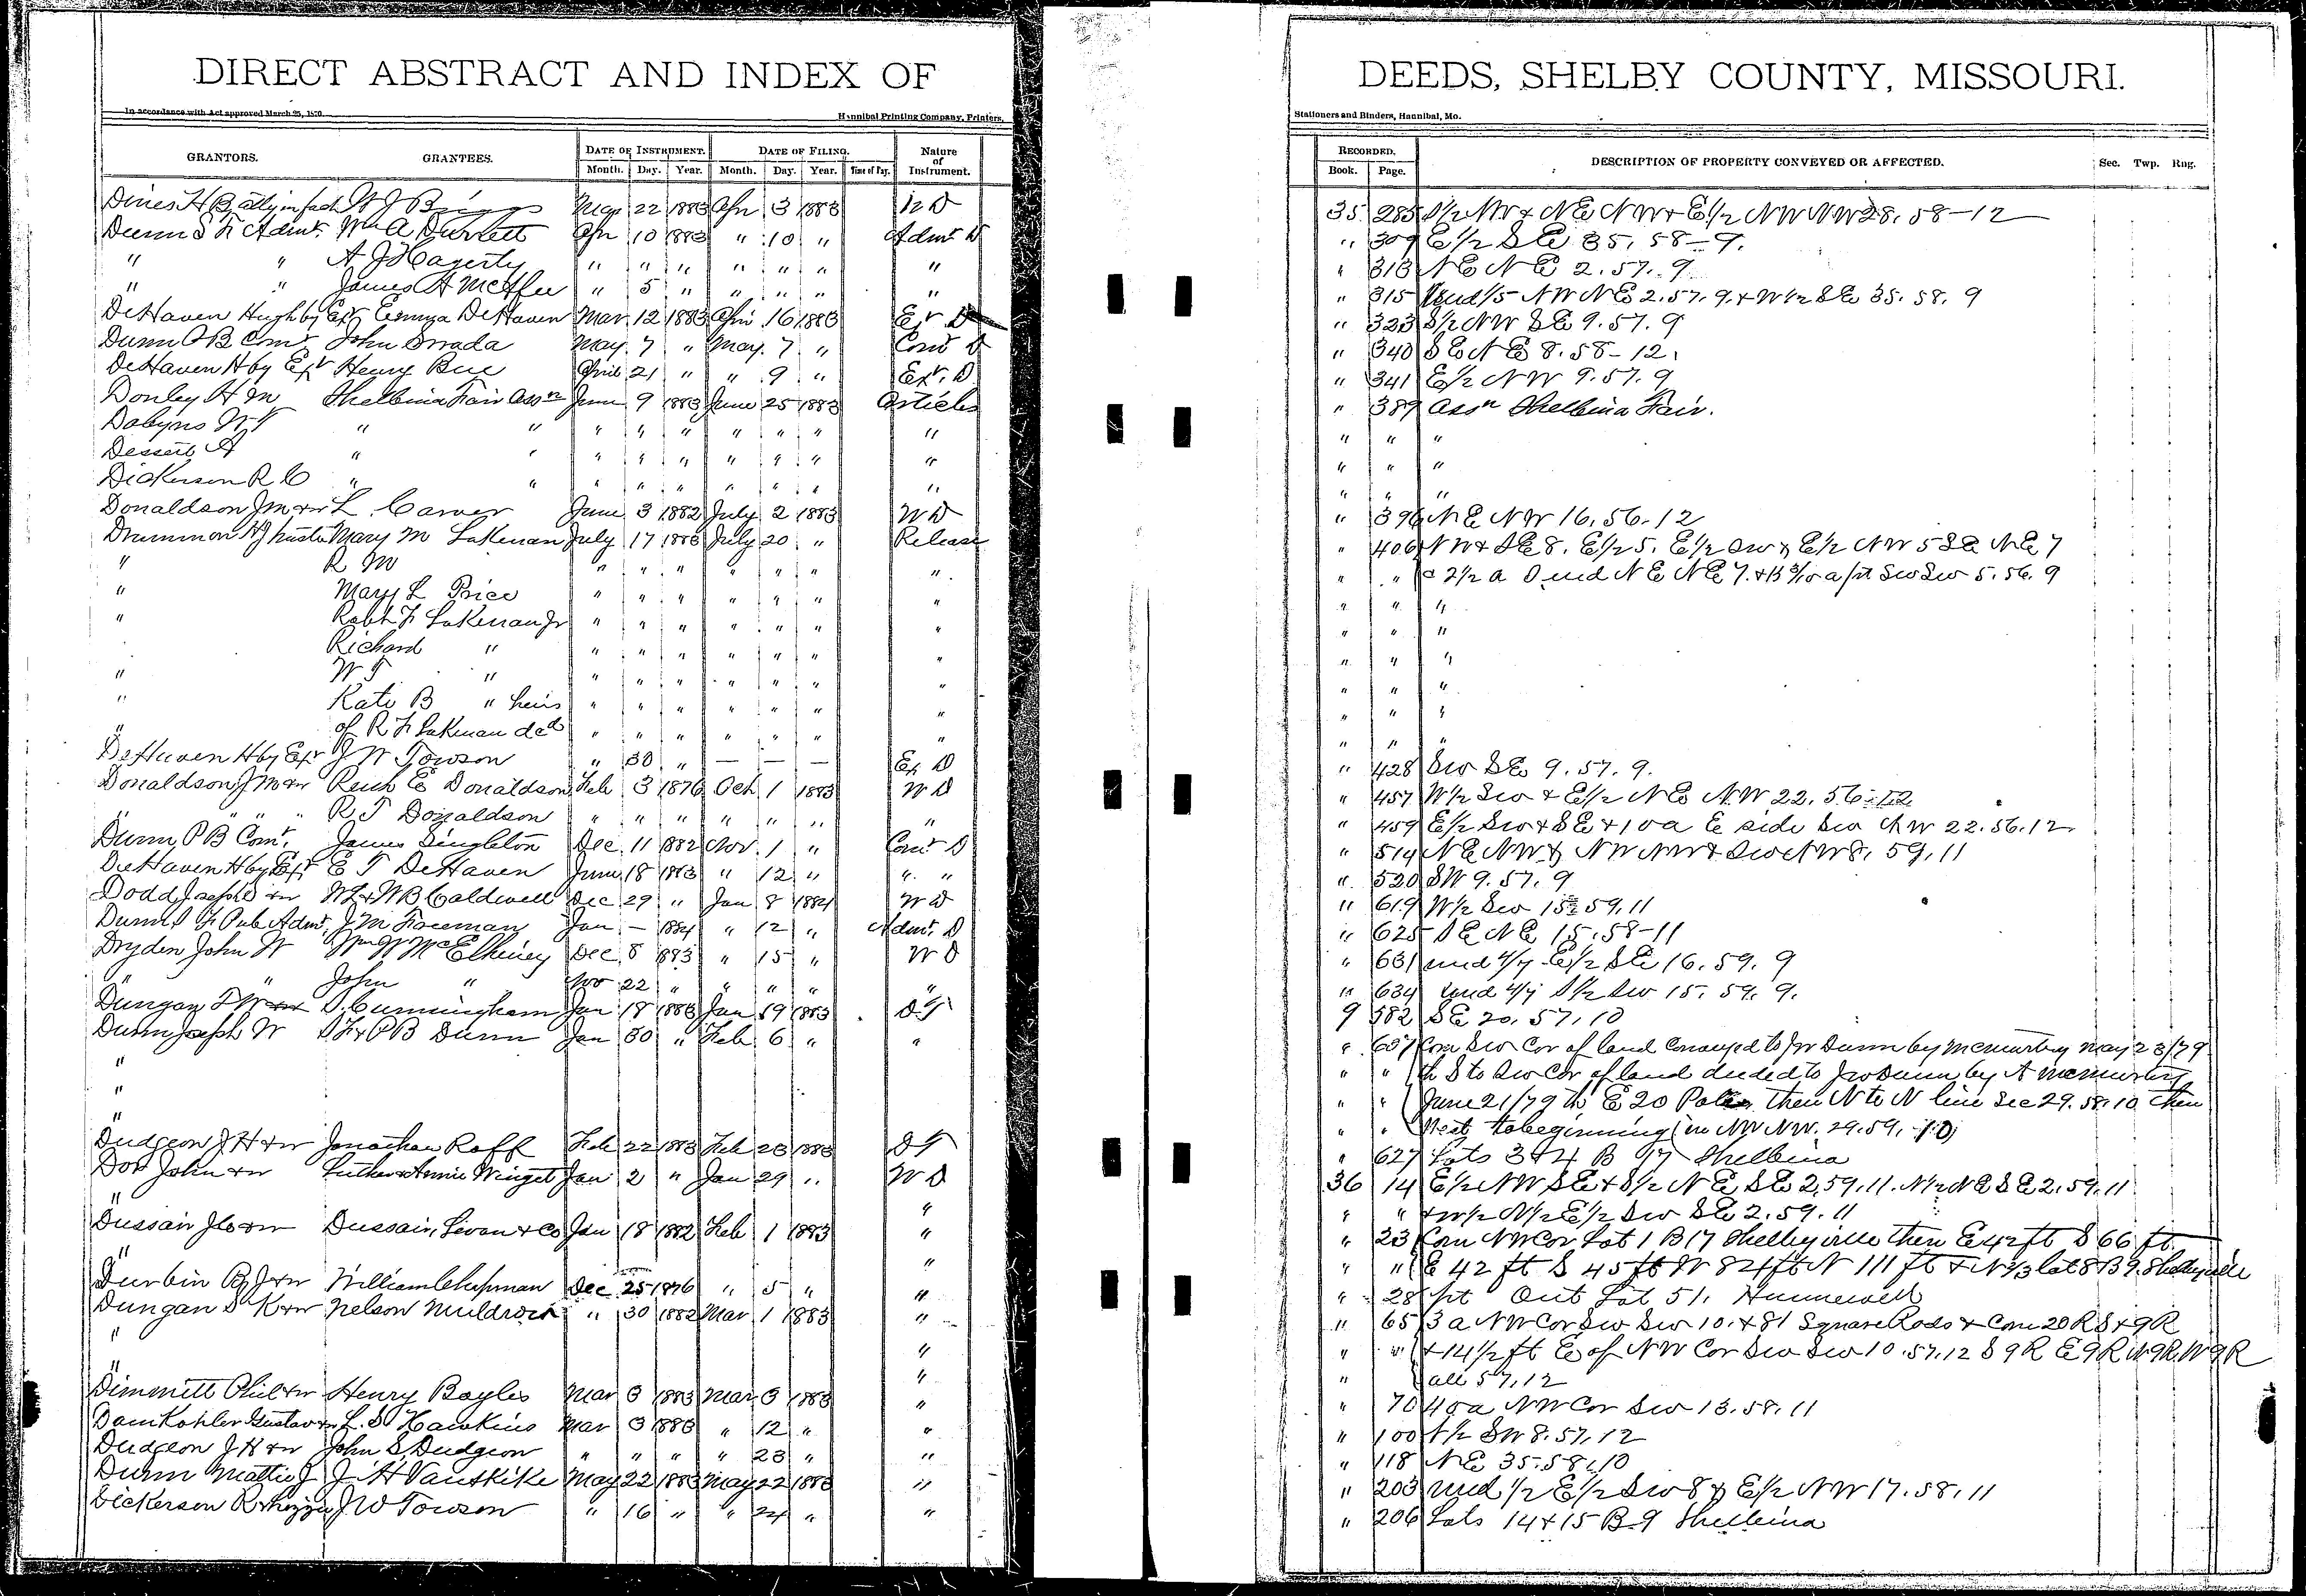 DIRECT ABSTRACT AND INDEX OF
In accordance with Act approved March 25, 1870.
Hannibal Printing Company, Printers,
GRANTORS. GRANTEES. DATE OF INSTRUMENT. DATE OF FILING. Nature of Instrument.
Month. Day. Year. Month. Day. Year. Time of Day.
Dines H B atty in fact W J Briggs Mar 22 1883 Apr 3 1883 W D
Dunn S F Admr. Wm A Durrett Apr 10 1883 " 10 " Admr D
" " A J Hagerty " " " " " " "
" " James A McAfee " 5 " " " " "
DeHaven Hugh by Exr Emma DeHaven Mar 12 1883 Apri 16 1883 Exr D
Dunn P B Comr John Swada May 7 " May 7 " Comr D
DeHaven H by Exr Henry Bue April 21 " " 9 " Exr. D
Donley H M Shelbina Fair Assn June 9 1883 June 25 1883 Articles
Dobyns W T " " " " " " " " "
Dessert A " " " " " " " " "
Dickerson R C " " " " " " " " "
Donaldson J M + w L. Carver June 3 1882 July 2 1883 W D
Drummon H J Mary M Lakenan July 17 1883 July 20 " Release
" R M " " " " " " "
" Mary L Price " " " " " " "
" Robt F Lakenan Jr " " " " " " "
Richard " " " " " " " "
" W T " " " " " " " "
" Kate B " heirs " " " " " " "
" of R F Lakenan decd " " " " " " "
DeHaven H by Exr J W Towson " 30 " — — — Ex D
Donaldson J M + w E Donaldson Feb 3 1876 Oct 1 1883 W D
" " " R T Donaldson " " " " " " "
Dunn P B Comr. James Singleton Dec. 11 1882 Nov. 1 " Comr D
DeHaven H by Exr E T DeHaven June 18 1883 " 12 " " "
Dodd Joseph + w W L + W B Caldwell Dec 29 " Jan 8 1884 W D
Dunn S F Pub Admr. J M Freeman Jan — 1884 " 12 " Admr. D
Dryden John W Wm W McElhiney Dec 8 1883 " 15 " W D
" " John " Nov 22 " " " " "
Dungan T W S. Cunningham Jan 18 1883 Jan 19 1883 D T
Dunn Joseph W S F + P B Dunn Jan 30 " Feb 6 " "
"
"
"
Dudgeon J H + w Jonathan Roff Feb 22 1883 Feb 23 1883 D T
John + w Luther + Annie Winget Jan 2 " Jan 29 " W D
" "
Dussair J C + w Dussair, Sivan + Co Jan 18 1882 Feb 1 1883 "
" "
Durbin B J + w William Chipman Dec 25 1876 " 5 " "
Dungan S K + w Nelson Muldrow " 30 1882 Mar 1 1883 "
" "
" "
Dimmitt Phil + w Henry Bayles Mar 3 1883 Mar 3 1883 "
Damkohler Gustav + w L. S Hawkins Mar 3 1883 " 12 " "
Dudgeon J H + w John S, Dudgeon " " " " 23 " "
Dunn Mattie J J H Vanskike May 22 1883 May 22 1883 "
Dickerson R + Lizzie J W Towson " 16 " " 24 " "
DEEDS, SHELBY COUNTY, MISSOURI.
Stationers and Binders, Hannibal, Mo.
RECORDED. DESCRIPTION OF PROPERTY CONVEYED OR AFFECTED. Sec. Twp. Rng.
Book. Page.
35 285 S1/2 NW + NE NW + E1/2 NW NW 28, 58-12
" 309 E1/2 SE 35, 58-9.
" 313 NE NE 2. 57. 9
" 315 Und 1/5 NW NE 2. 57. 9. + W1/2 SE 35. 58. 9
" 323 S1/2 NW SE 9. 57. 9
" 340 SE NE 8. 58-12.
" 341 E1/2 NW 9. 57. 9
" 389 Assn Shelbina Fair.
" " "
" " "
" " "
" 396 NE NW 16, 56-12
" 406 NW + SE 8. E1/2 5. E1/2 SW + E1/2 NW 5 SE NE 7
" " 2 1/2 a S end NE NE 7. + 13 3/10 a pt SW SW 5. 56. 9
" " "
" " "
" " "
" " "
" " "
" " "
" 428 SW SE 9. 57. 9.
" 457 W1/2 SW + E1/2 NE NW 22, 56-12
" 459 E1/2 SW + SE + 10 a E side SW NW 22. 56. 12
" 514 NE NW + NW NW + SW NW 8, 59, 11
" 520 SW 9. 57. 9
" 619 W1/2 SW 15 59, 11
" 625 SE NE 15, 58-11
" 631 und 4/7 E1/2 SE 16. 59. 9
" 634 und 4/7 S1/2 SW 15. 59. 9.
9 582 SE 20, 57, 10
" 607 Com SW Cor of land conveyed to J W Dunn by McMurtry May 23/79
" " th S to SW Cor of land deeded to J W Dunn by A McMurtry
" " June 21/79 th E 20 Poles then N to N line Sec 29. 58. 10 then
" " West to beginning in NW NW. 29. 59, 10
" 627 Lots 3 + 4 B 17 Shelbina
36 14 E1/2 NW SE + S1/2 NE SE 2, 59, 11. N1/2 NE SE 2. 59. 11
" " + W1/2 N1/2 E1/2 SW SE 2. 59. 11
" 23 Com NW Cor Lot 1 B 17 Shelbyville then E 42 ft S 66 ft
" " E 42 ft S 45 ft W 84 ft N 111 ft + N 1/3 lot 8 B 9. Shelbyville
" 28 pt Out Lot 51. Hunnewell
" 65 3 a NW Cor SW SW 10. + 81 Square Rods + Com 20 R S + 9 R
" " + 14 1/2 ft E of NW Cor SW SW 10. 57. 12 S 9 R E 9 R N 9 R. W 9 R
" all 57, 12
" 70 40 a NW Cor SW 13. 58. 11
" 100 SW 8. 57, 12
" 118 NE 35. 58, 10
" 203 und 1/2 E1/2 SW 8 + E1/2 NW 17. 58, 11
" 206 Lots 14 + 15 B 9 Shelbina